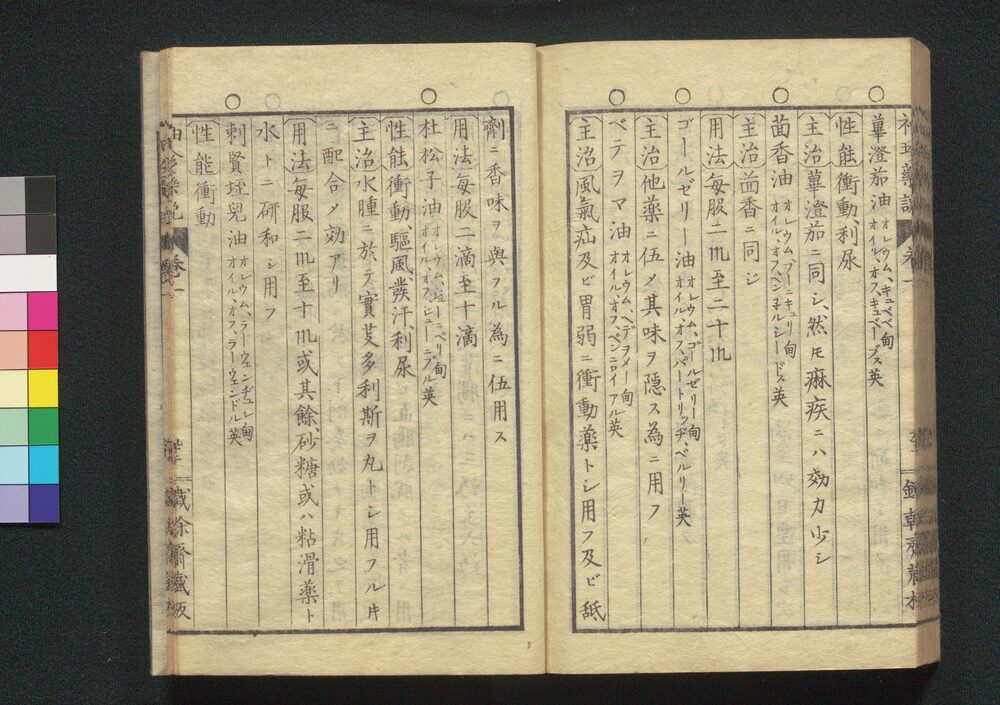 蓽澄茄油 オレウム、キュベベ甸 オイル、オフ、キュベーブス英
性能衝動、利尿
主治蓽澄茄ニ同シ、然𪜈痳疾ニハ効力少シ
茴香油 オレウム、フーニキュリ甸 オイル、オフ、ヘン子ルシードス英
主治茴香ニ同シ
用法毎服二㎖至二十㎖
ゴールゼリー油 オレウム、ゴールゼリー甸 オイル、オフ、パートリッヂ、ベルリー英
主治他薬ニ伍メ其味ヲ隠ス為ニ用フ
ベデヲマ油 オレウム、ヘデヲメー甸 オイル、オフ、ペンニロイアル英
主治風氣疝及ビ胃弱ニ衝動薬トシ用フ及ビ舐
劑ニ香味ヲ與フル為ニ伍用ス
用法毎服二滴至十滴
杜松子油
性能衝動、驅風、発汗、利尿
主治水腫ニ於テ實芰多利斯ヲ丸トシ用フル片
ニ配合メ効アリ
用法毎服二㎖至十㎖或其餘、砂糖或ハ粘滑薬ト
水トニ研和シ用フ
剌賢垤児油 オイル、オフ、ラーウェンドル英
性能衝動